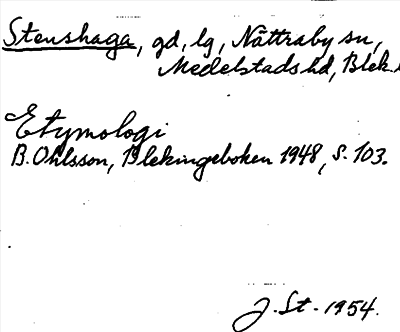 Stenshaga, gd, lg, Nättraby sn,
Medelstads hd, Blek.
Etymologi
B. Ohlsson, Blekingeboken 1948, S. 103.
J. St. 1954.